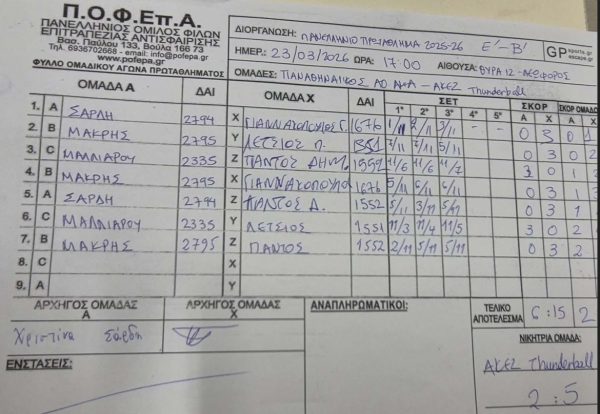 Π.Ο.Φ.Επ.Α.
ΠΑΝΕΛΛΗΝΙΟΣ ΟΜΙΛΟΣ ΦΙΛΩΝ
ΕΠΙΤΡΑΠΕΖΙΑΣ ΑΝΤΙΣΦΑΙΡΙΣΗΣ
Βασ. Παύλου 133, Βούλα 166 73
Τηλ. 6935702668 - email: info@pofepa.gr
www.pofepa.gr
ΦΥΛΛΟ ΟΜΑΔΙΚΟΥ ΑΓΩΝΑ ΠΡΩΤΑΘΛΗΜΑΤΟΣ
ΔΙΟΡΓΑΝΩΣΗ: ΠΑΝΕΛΛΗΝΙΟ ΠΡΩΤΑΘΛΗΜΑ 2025-26 Ε'-Β'
GP sports.gr escape.gr
ΗΜΕΡ.: 23/03/2026 ΩΡΑ: 17:00 ΑΙΘΟΥΣΑ: ΘΥΡΑ 12 - ΛΕΩΦΟΡΟΣ
ΟΜΑΔΕΣ: ΠΑΝΑΘΗΝΑΙΚΟΣ ΑΟ ΑμεΑ - ΑΚΕΖ Thunderball
ΟΜΑΔΑ Α ΔΑΙ ΟΜΑΔΑ Χ ΔΑΙ ΣΕΤ ΣΚΟΡ ΣΚΟΡ ΟΜΑΔΩΝ
1° 2° 3° 4° 5° Α Χ Α Χ
1. Α ΣΑΡΔΗ 2794 Χ ΓΙΑΝΝΑΚΟΠΟΥΛΟΣ Γ. 1676 1/11 2/11 3/11 - - 0 3 0 1
2. Β ΜΑΚΡΗΣ 2795 Υ ΛΕΤΣΙΟΣ Π. 1551 7/11 5/11 0 3 0 2
3. C ΜΑΛΛΙΑΡΟΥ 2335 Ζ ΠΑΝΤΟΣ ΔΗΜ. 1552 11/6 11/6 11/7 3 0 1
4. Β ΜΑΚΡΗΣ 2795 Χ ΓΙΑΝΝΑΚΟΠΟΥΛΟ 1676 5/11 6/11 6/11 0 3 1 3
5. Α ΣΑΡΔΗ 2794 Ζ ΠΑΝΤΟΣ Δ. 1552 5/11 3/11 5/11 0 3 1
6. C ΜΑΛΛΙΑΡΟΥ 2335 Υ ΛΕΤΣΙΟΣ 1551 11/3 11/4 11/5 3 0 2
7. Β ΜΑΚΡΗΣ 2795 Ζ ΠΑΝΤΟΣ 1552 2/11 5/11 5/11 0 3 2
8. C Χ
9. Α Υ
ΑΡΧΗΓΟΣ ΟΜΑΔΑΣ Α
ΑΡΧΗΓΟΣ ΟΜΑΔΑΣ Χ
ΑΝΑΠΛΗΡΩΜΑΤΙΚΟΙ:
ΤΕΛΙΚΟ ΑΠΟΤΕΛΕΣΜΑ 6:15 2
Χριστίνα Σάρδη
ΝΙΚΗΤΡΙΑ ΟΜΑΔΑ:
ΑΚΕΖ Thunderball
ΕΝΣΤΑΣΕΙΣ:
2:5